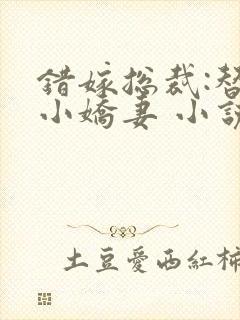 錯嫁總裁:替
小嬌妻 小說
土豆愛西紅柿